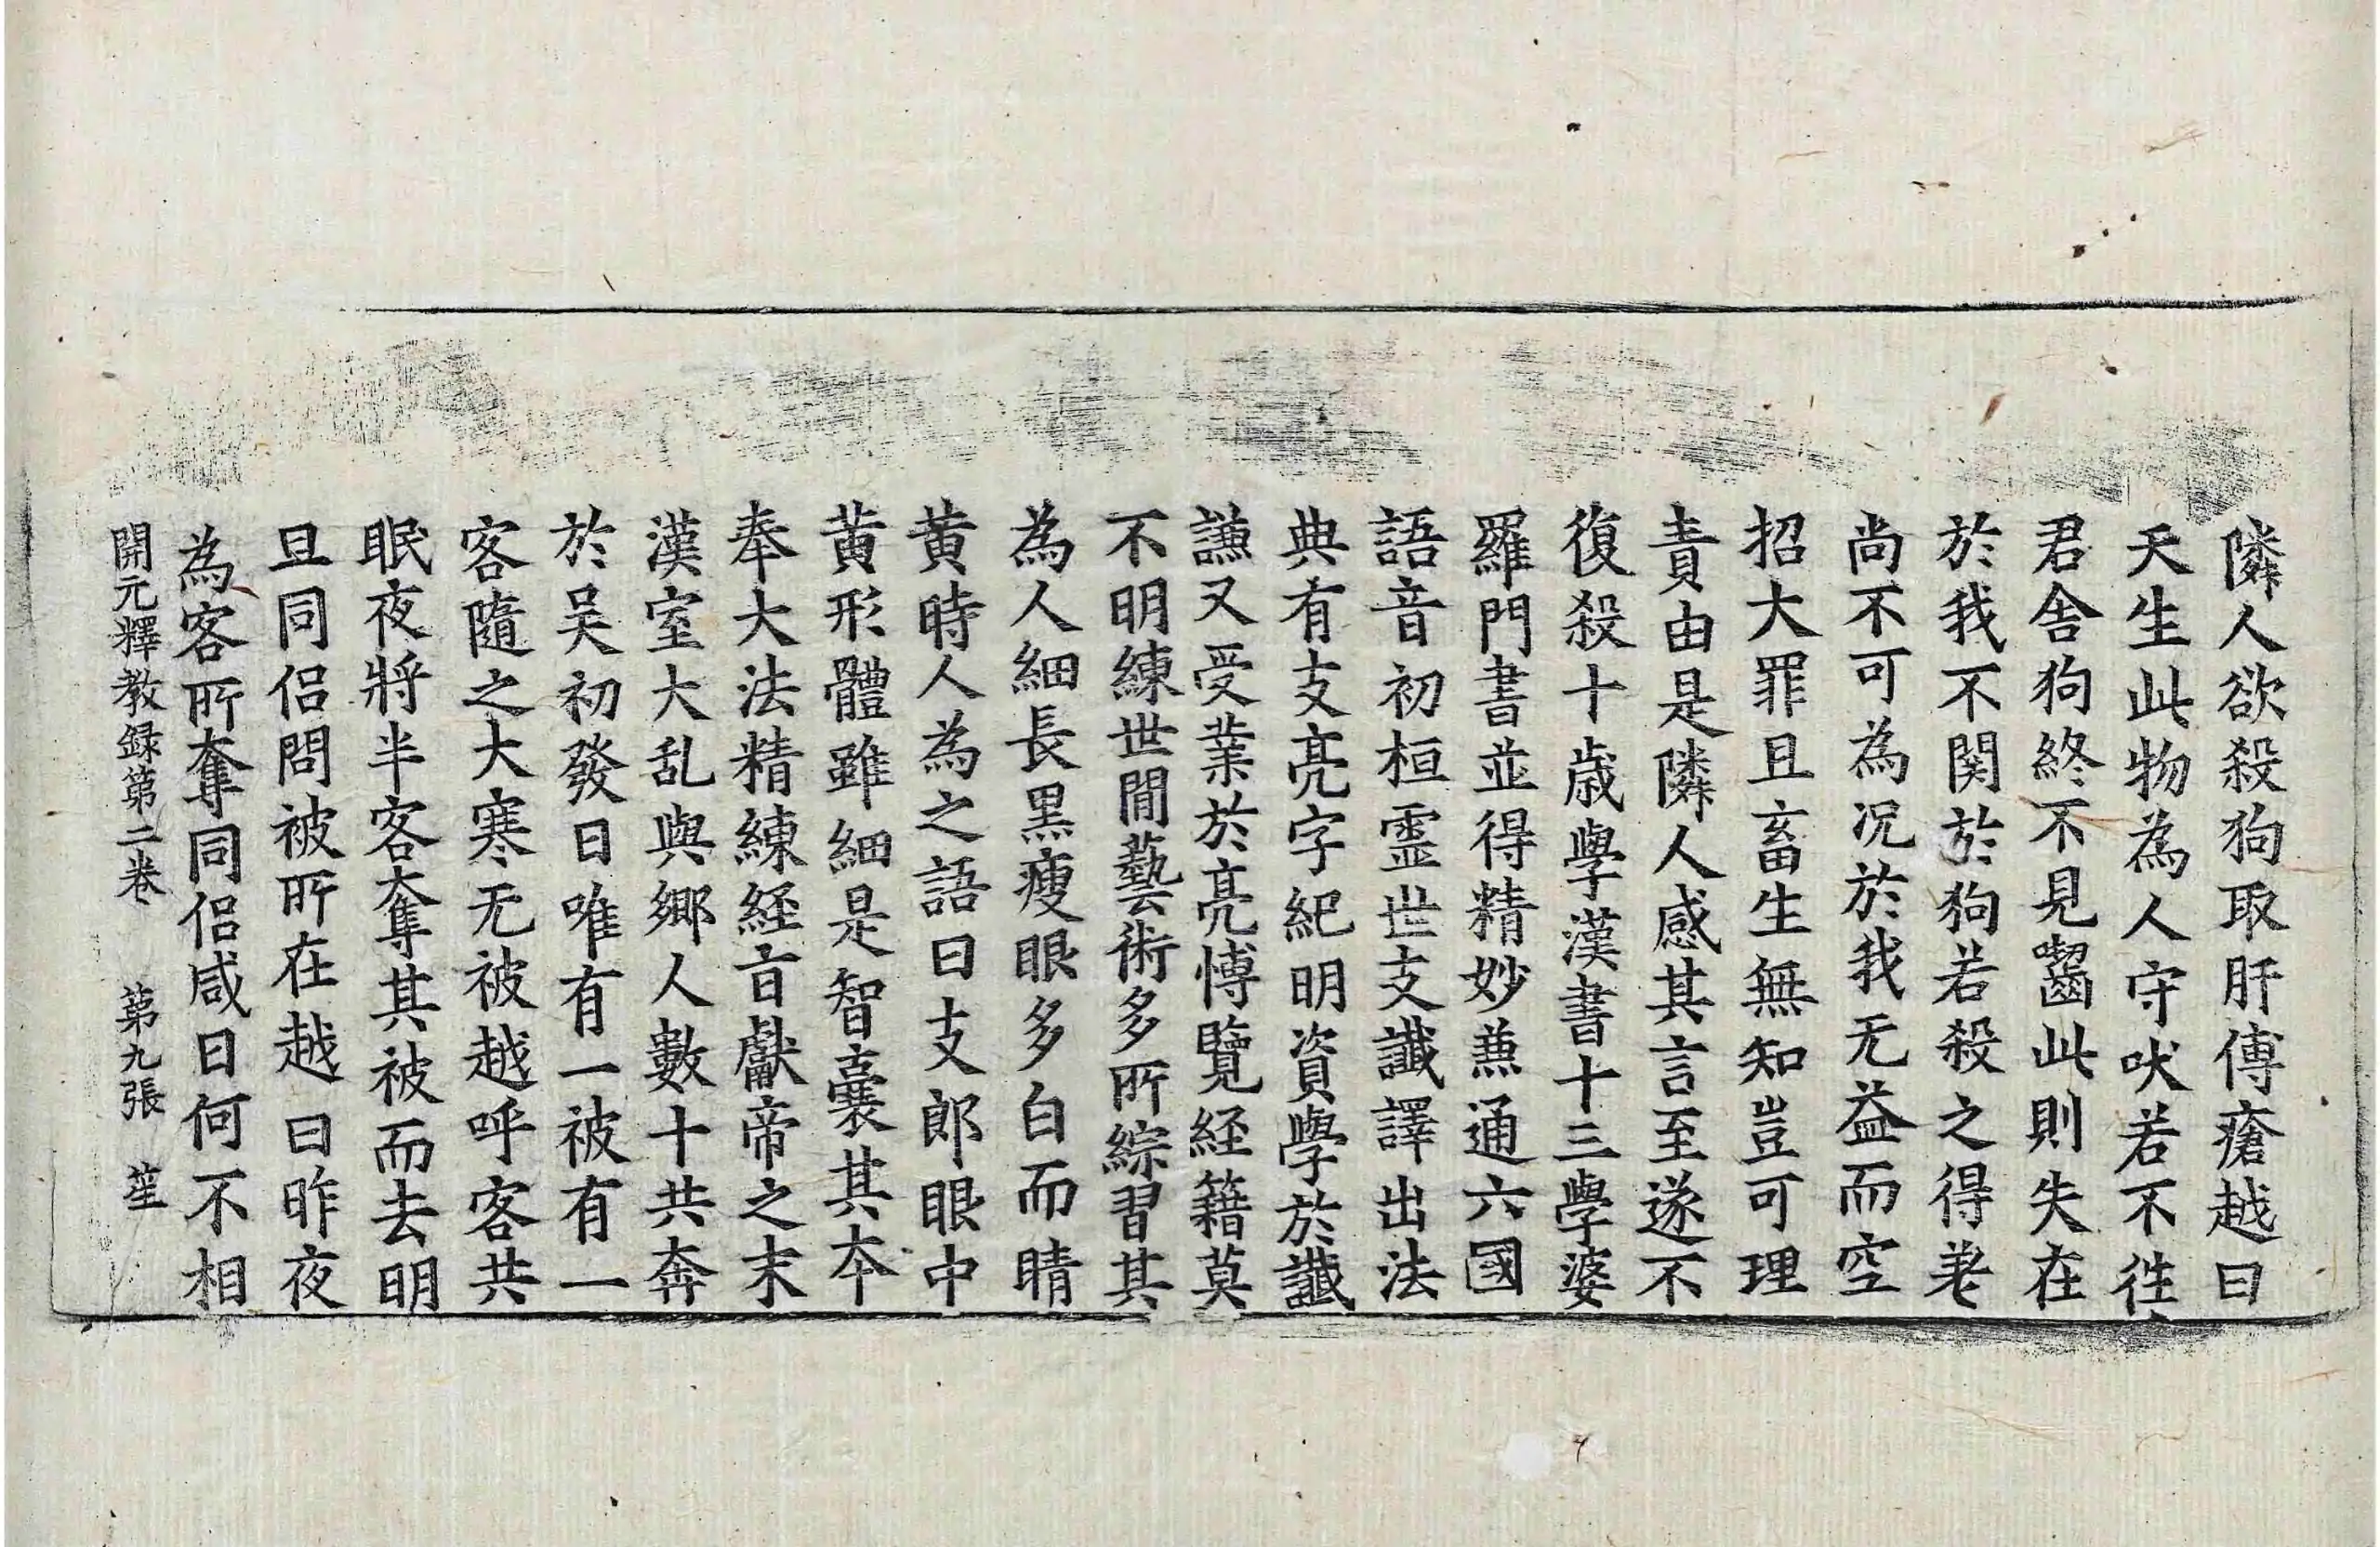 隣人欲殺狗取肝傅瘡越曰
天生此物為人守吠若不徃
君舍狗終不見齧此則失在
於我不関於狗若殺之得差
尚不可為况於我无益而空
招大罪且畜生無知豈可理
責由是隣人感其言至遂不
復殺十歳學漢書十三學婆
羅門書並得精妙兼通六國
語音初桓霊世支讖譯出法
典有支亮字紀明資學於讖
謙又受業於亮愽覽経籍莫
不明練世間藝術多所綜習其
為人細長黑瘦眼多白而睛
黄時人為之語曰支郎眼中
黄形體雖細是智囊其夲
奉大法精練経㫖獻帝之末
漢室大乱與鄉人數十共奔
於吴初發日唯有一被有一
客隨之大寒无被越呼客共
眠夜將半客奪其被而去明
旦同侣問被所在越曰昨夜
為客所奪同侣咸曰何不相
開元釋教録第二卷　第九張　笙